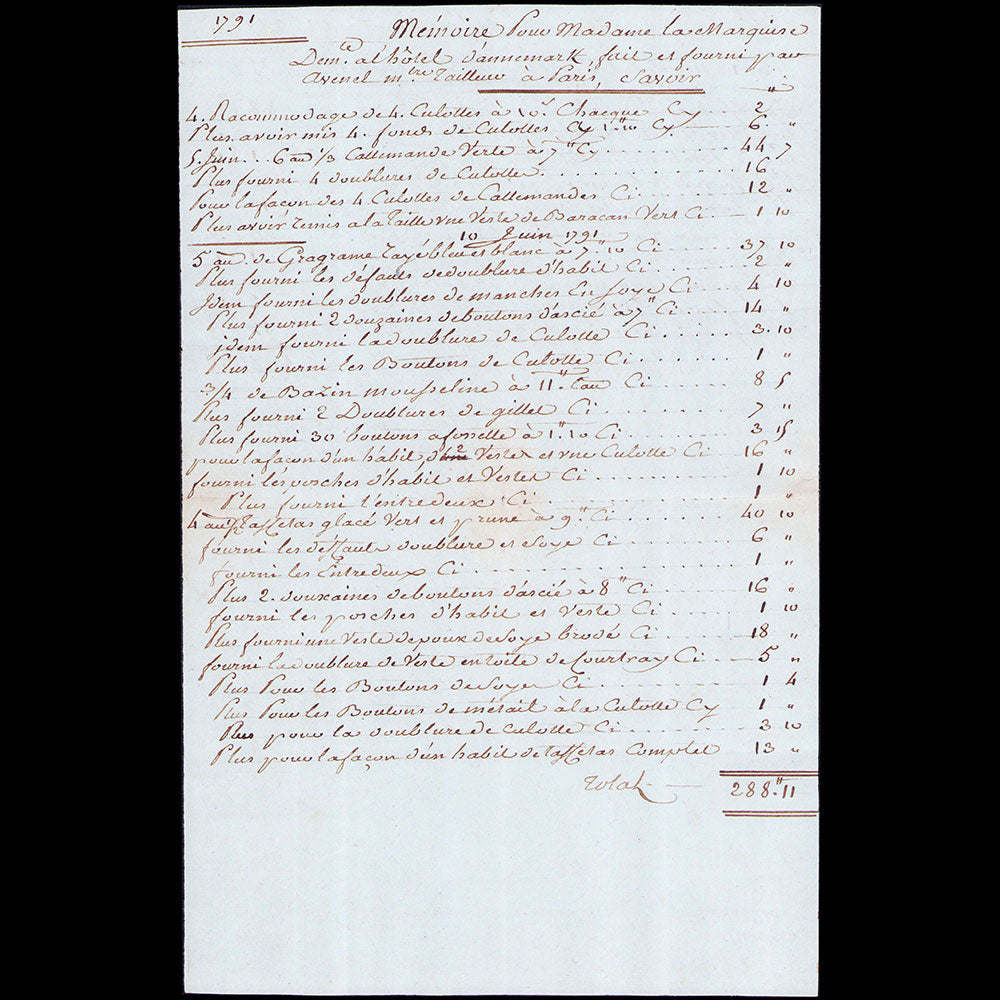 1791
Mémoire Pour Madame la Marquise
Dem.te a l'hôtel d'annemark, fait et fourni par
Avenel m.tre Tailleur à Paris, Savoir
"
4. Racommodage de 4. Culottes à 10s Chacque Cy . . 2 "
Plus avoir mis 4. fonds de Culottes Cy 1"10 Cy 6. "
5. Juin . . . 6 au 1/3 Callemande Verte à 7" Cy 44 7
Plus fourni 4 doublures de Culottes . . . . 16
Pour la façon des 4 Culottes de Callemandes Ci . . 12 "
Plus avoir remis a la Taille vne Veste de Baracan Vert Ci — 1 10
10 Juin 1791
5 au. de Gragrame Rayé bleu et blanc à 7"10 Ci . . . 37 10
Plus fourni les défauts de doublure d'habit Ci . . . 2 "
Jdem fourni les doublures de manches En Soye Ci . . 4 10
Plus fourni 2 douzaines de boutons d'ascié à 7" Ci . . . 14 "
jdem fourni la doublure de Culotte Ci . . . 3. 10
Plus fourni les Boutons de Culotte Ci . . . 1 "
3/4 de Bazin mousseline à 11" l'au Ci . . . 8 5
Plus fourni 2 Doublures de gillet Ci . . . 7 "
Plus fourni 30 boutons a fossette à 1"10 Ci . . . 3 15
pour la façon d'un habit, 2 Vestes et vne Culotte Ci 16 "
fourni les poches d'habit et Vestes Ci . . . 1 10
Plus fourni l'entredeux Ci . . . 1 "
4 au 1/2 Taffetas glacé Vert et prune à 9" Ci . . . 40 10
fourni les deffauts doublure et Soye Ci . . . 6 "
fourni les Entredeux Ci . . . 1 "
Plus 2. douxaines de boutons d'ascié à 8" Ci . . . 16 "
fourni les porches d'habit et Veste Ci . . . 1 10
Plus fourni une Veste de poux de Soye brodé Ci . . . 18 "
fourni la doublure de Veste en toile de Courtray Ci — 5 "
Plus Pour les Boutons de Soyer Ci . . . 1 4
Plus Pour les Boutons de métail à la Culotte Cy 1 "
Plus pour la doublure de Culotte Ci . . . 3 10
Plus pour la façon d'un habit de taffetas Complet 13 "
Total — 288"11